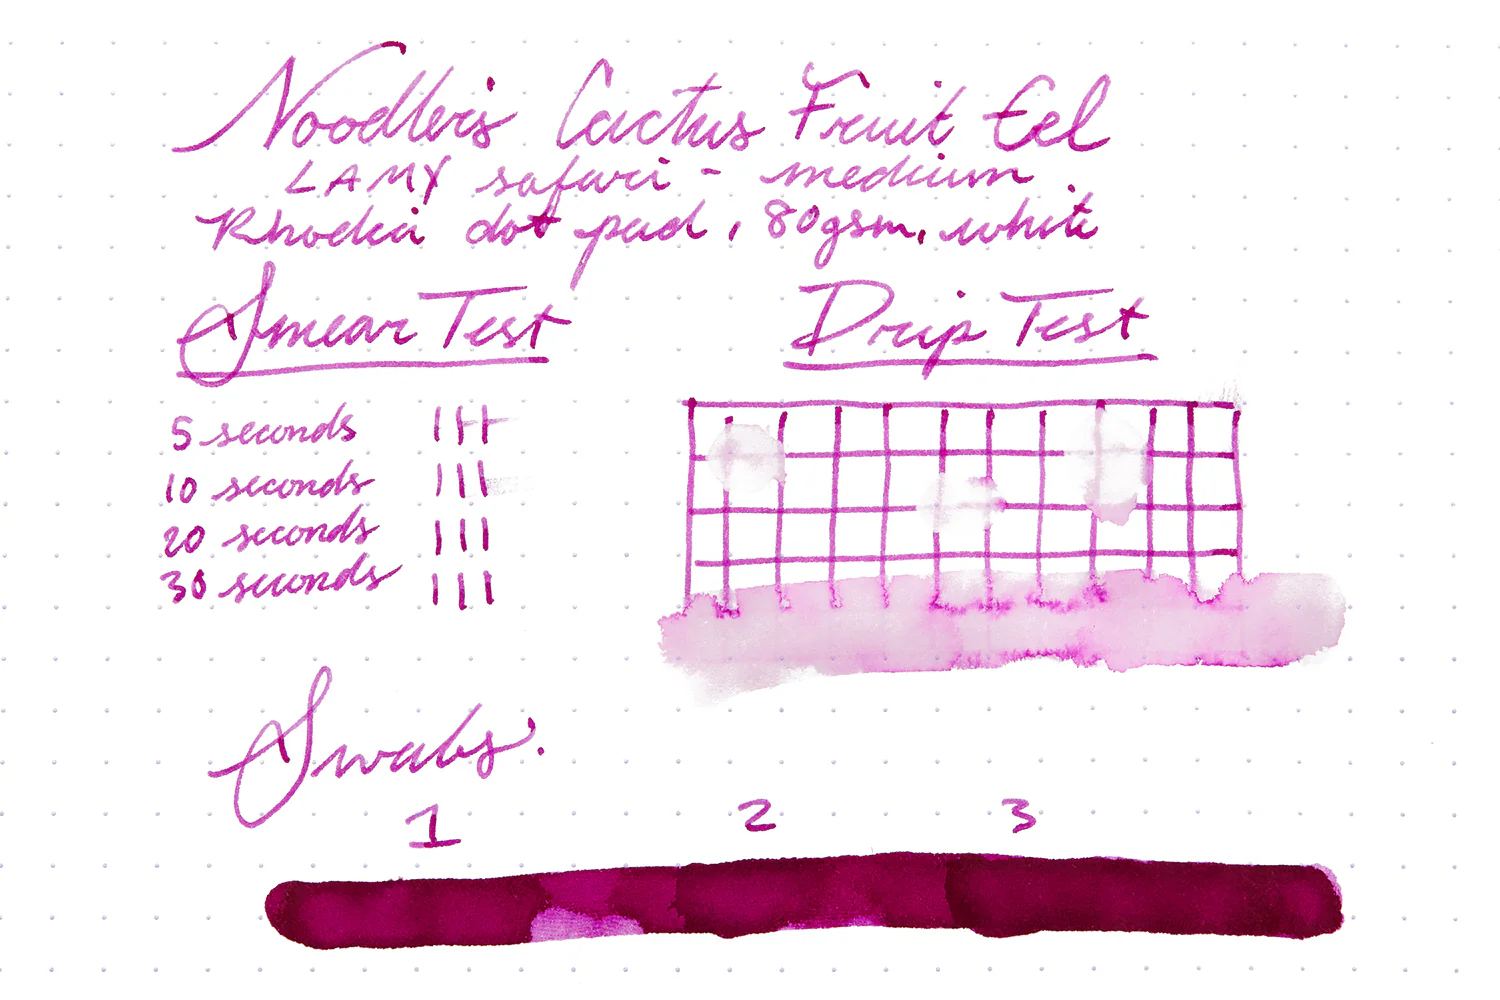 Noodler's Cactus Fruit Eel
LAMY safari - medium
Rhodia dot pad, 80gsm, white
Smear Test
Drip Test
5 seconds
10 seconds
20 seconds
30 seconds
Swabs.
1 2 3